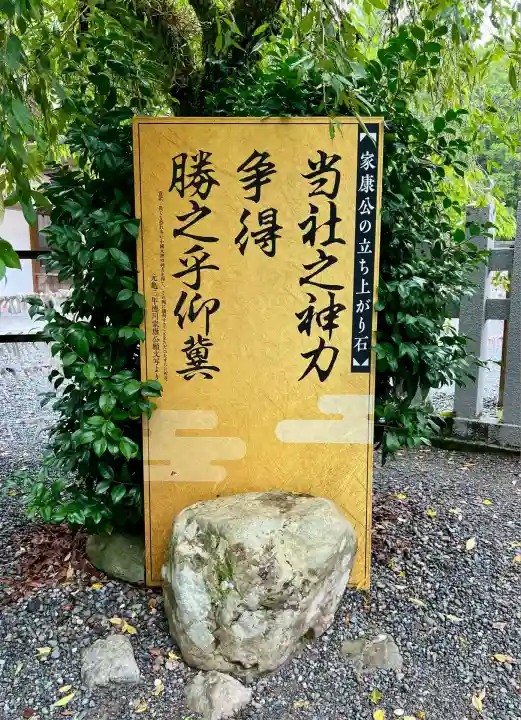 【家康公の立ち上がり石】
当社之神力
争得
勝之乎仰冀
元亀三年徳川家康公願文写より